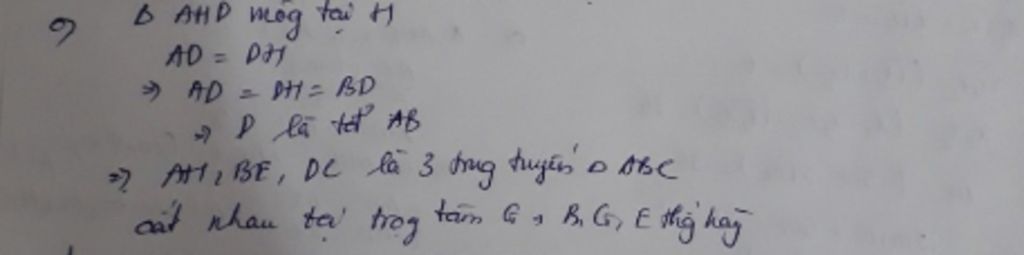 c) Δ AHD vuông tại H
AD = DH
=> AD = DH = BD
=> D là tđ AB
=> AH, BE, DC là 3 trung tuyến Δ ABC
cắt nhau tại trọg tâm G => B, G, E thẳg hàg